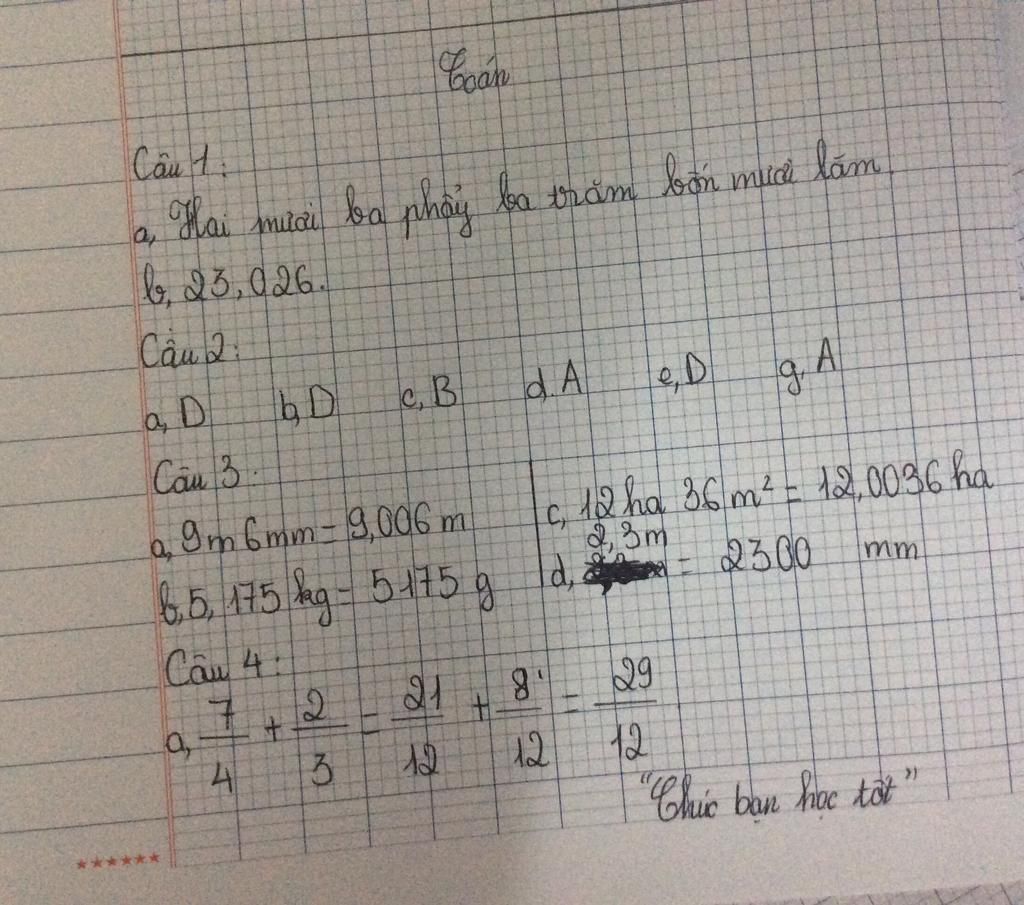 Toán
Câu 1:
a, Hai mươi ba phẩy ba trăm bốn mươi lăm
b, 23,026.
Câu 2:
a, D b, D c, B d. A e, D g. A
Câu 3:
a, 9m 6mm = 9,006 m
b, 5,175 kg = 5175 g
c, 12 ha 36 m² = 12,0036 ha
d, 2,3m = 2300 mm
Câu 4:
a, 7/4 + 2/3 = 21/12 + 8/12 = 29/12
"Chúc bạn học tốt"